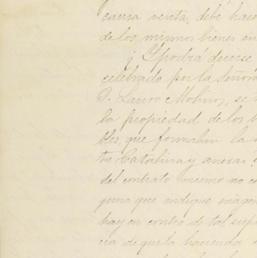 causa venta, debe hacer
de los mismos bienes en
¿Y podrá decirse
celebrado por la Señor
D. Lauro Molino, se
la propiedad de los b
bles que forman la
ta Catalina y anexas
del contrato mismo no co
guna que indique siquie
hay en contra de tal sup
cia de que la hacienda